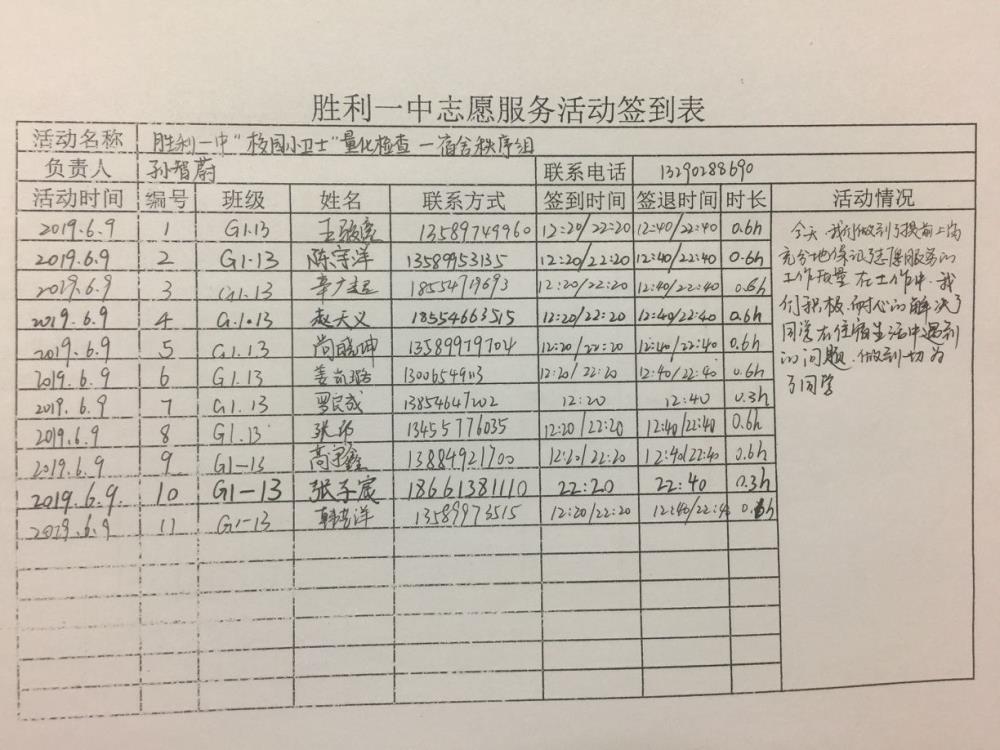 胜利一中志愿服务活动签到表
活动名称 胜利一中"校园小卫士"量化检查-宿舍秩序组
负责人 孙智蔚 联系电话 13290288690
活动时间 编号 班级 姓名 联系方式 签到时间 签退时间 时长 活动情况
2019.6.9 1 G1.13 13589749960 12:20/22:20 12:40/22:40 0.6h
2019.6.9 2 G1.13 陈宇洋 13589953135 12:20/22:20 12:40/22:40 0.6h
2019.6.9 3 G1.13 18554719693 12:20/22:20 12:40/22:40 0.6h
2019.6.9 4 G.1.13 赵天义 18554663515 12:20/22:20 12:40/22:40 0.6h
2019.6.9 5 G1.13 尚晓坤 13589979704 12:20/22:20 12:40/22:40 0.6h
2019.6.9 6 G1.13 12:20/22:20 12:40/22:40 0.6h
2019.6.9 7 G1.13 罗良成 13854647202 12:20 12:40 0.3h
2019.6.9 8 G1.13 13455776035 12:20/22:20 12:40/22:40 0.6h
2019.6.9 9 G1-13 高宇鑫 13884921700 12:20/22:20 12:40/22:40 0.6h
2019.6.9. 10 G1-13 张子宸 18661381110 22:20 22:40 0.3h
2019.6.9 11 G1-13 13589973515 12:20/22:20 12:40/22:40 0.6h
今天,我们做到了提前上岗
充分地保证志愿服务的
工作质量.在工作中,我
们积极,耐心的解决了
同学在住宿生活中遇到
的问题,做到一切为
了同学